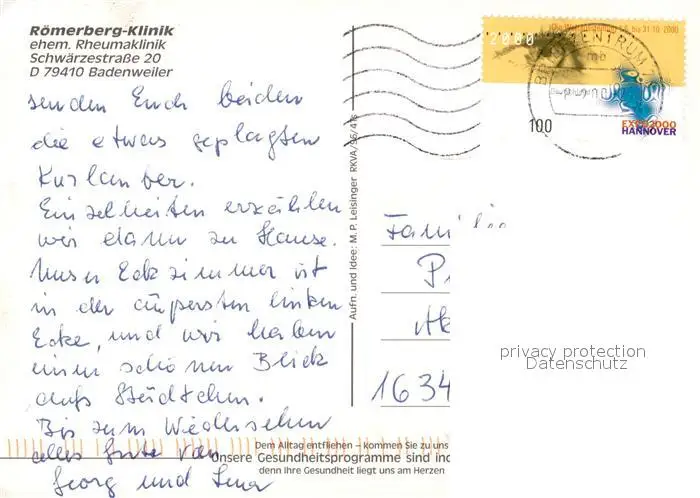 Römerberg-Klinik
ehem. Rheumaklinik
Schwärzestraße 20
D 79410 Badenweiler
senden Euch beiden
die etwas geplagten
Kurlauber.
Einzelheiten erzählen
wir dann zu Hause.
Unser Eckzimmer ist
in der äußersten linken
Ecke, und wir haben
einen schönen Blick
aufs Städtchen.
Bis zum Wiedersehen
alles gute von
Georg und
Aufn. und Idee: M. P. Leisinger RKVA/96/476
2000
bis 31.10.2000
100
EXPO2000
HANNOVER
BRIEFZENTRUM
Familie
P
Ak
1634
privacy protection
Datenschutz
Dem Alltag entfliehen – kommen Sie zu uns
Unsere Gesundheitsprogramme sind ind
denn Ihre Gesundheit liegt uns am Herzen